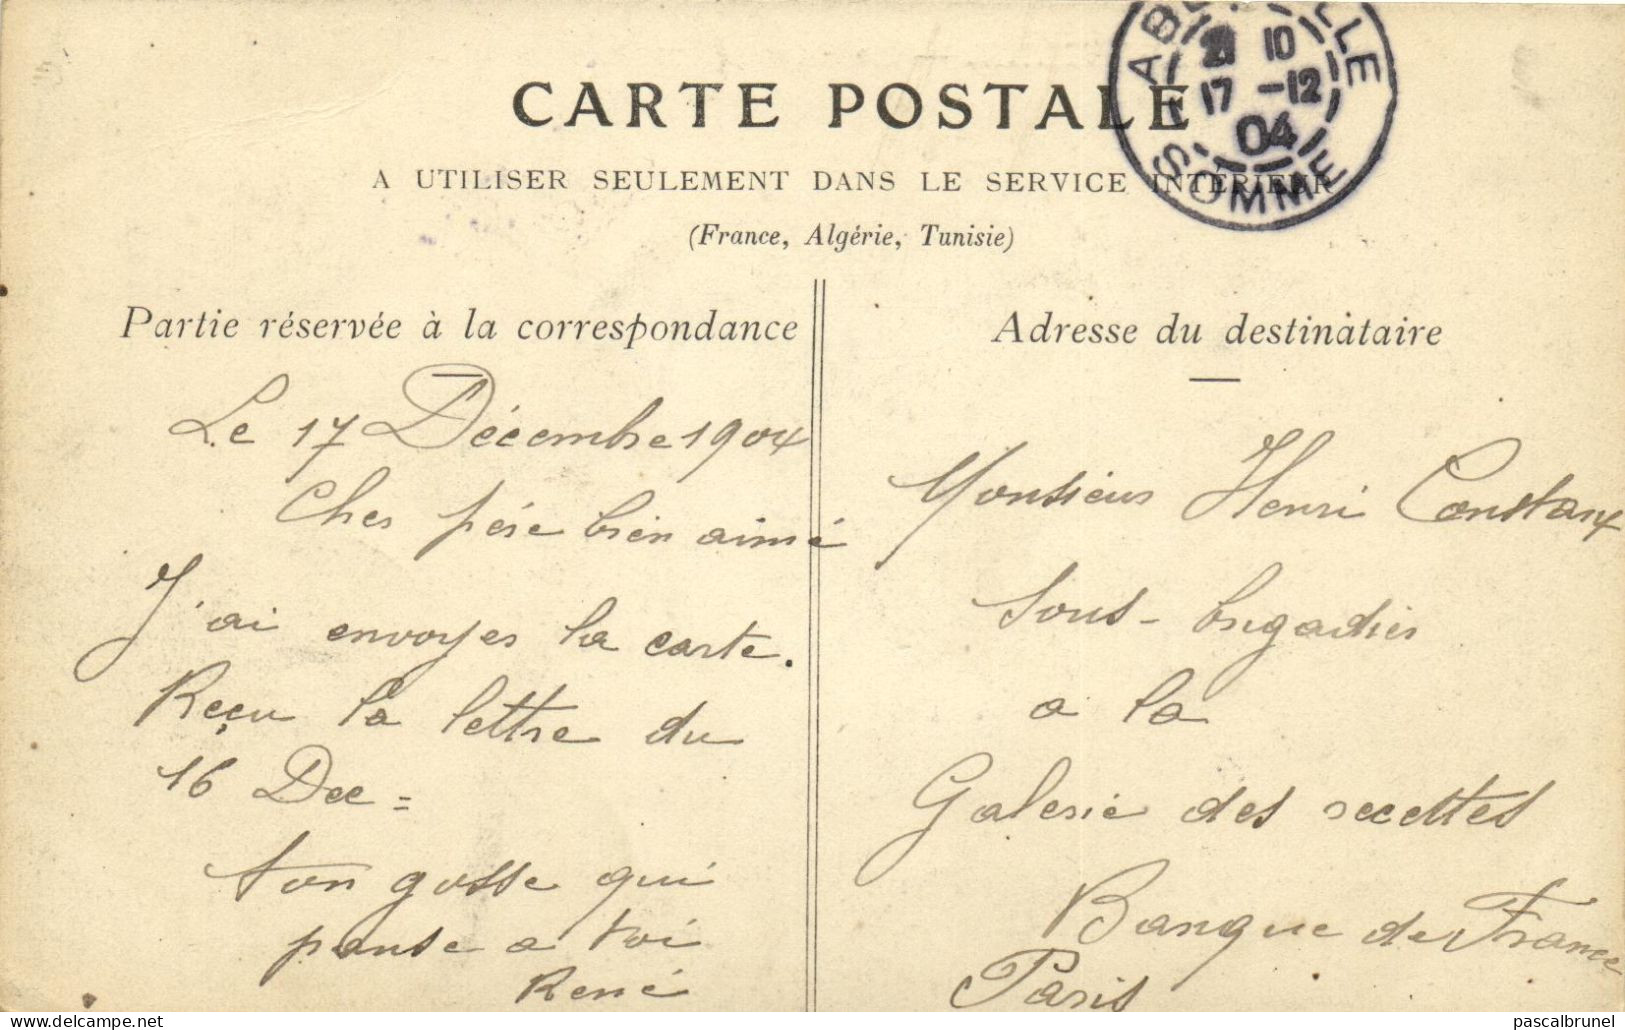 CARTE POSTALE
A UTILISER SEULEMENT DANS LE SERVICE INTÉRIEUR
(France, Algérie, Tunisie)
ABBEVILLE
10
17 -12
04
SOMME
Partie réservée à la correspondance
Le 17 Décembre 1904
Cher père bien aimé
J'ai envoyer la carte.
Reçu la lettre du
16 Dec =
ton gosse qui
panse a toi
René
Adresse du destinataire
Monsieur Henri Constant
Sous-brigadier
a la
Galerie des recettes
Banque de France
Paris
pascalbrunel
delcampe.net